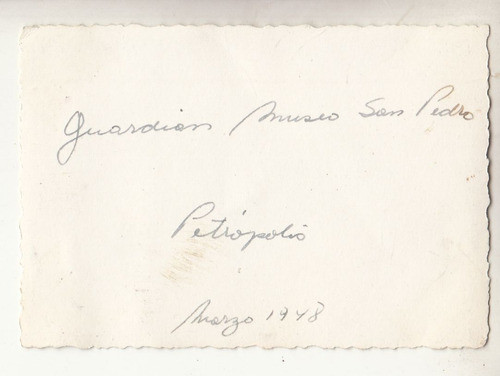 Guardian Museo San Pedro
Petrópolis
Marzo 1948